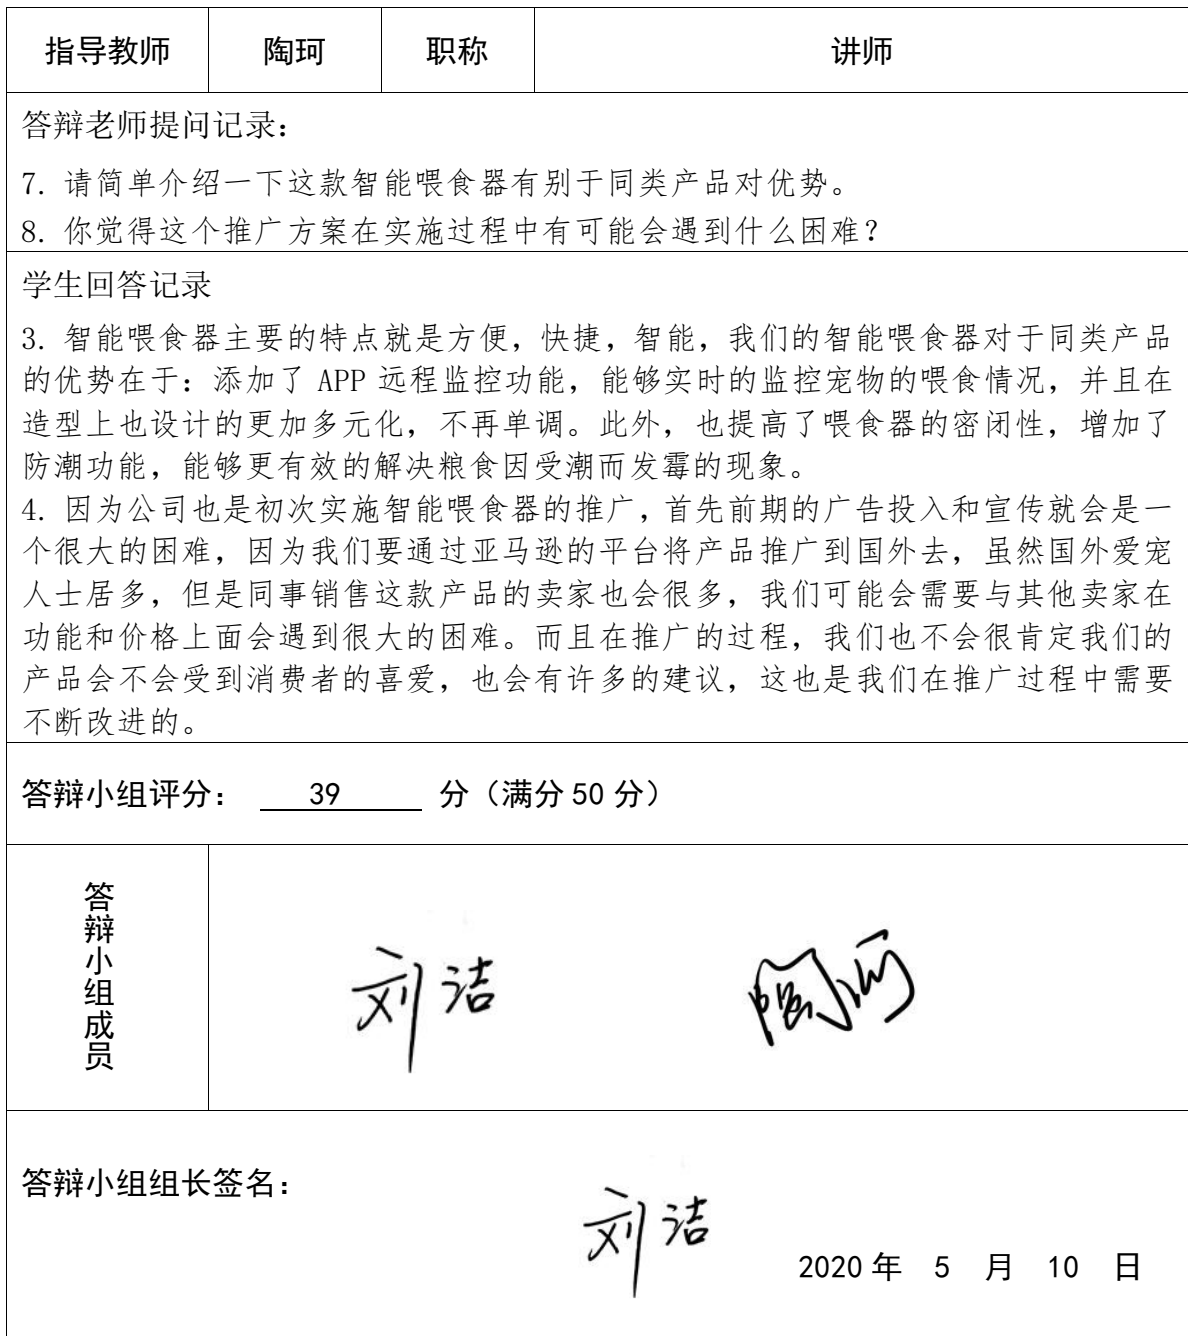 指导教师 陶珂 职称 讲师
答辩老师提问记录：
7. 请简单介绍一下这款智能喂食器有别于同类产品对优势。
8. 你觉得这个推广方案在实施过程中有可能会遇到什么困难？
学生回答记录
3. 智能喂食器主要的特点就是方便，快捷，智能，我们的智能喂食器对于同类产品
的优势在于：添加了 APP 远程监控功能，能够实时的监控宠物的喂食情况，并且在
造型上也设计的更加多元化，不再单调。此外，也提高了喂食器的密闭性，增加了
防潮功能，能够更有效的解决粮食因受潮而发霉的现象。
4. 因为公司也是初次实施智能喂食器的推广，首先前期的广告投入和宣传就会是一
个很大的困难，因为我们要通过亚马逊的平台将产品推广到国外去，虽然国外爱宠
人士居多，但是同事销售这款产品的卖家也会很多，我们可能会需要与其他卖家在
功能和价格上面会遇到很大的困难。而且在推广的过程，我们也不会很肯定我们的
产品会不会受到消费者的喜爱，也会有许多的建议，这也是我们在推广过程中需要
不断改进的。
答辩小组评分： 39 分（满分 50 分）
答辩小组成员
刘洁 陶珂
答辩小组组长签名：
刘洁
2020 年 5 月 10 日